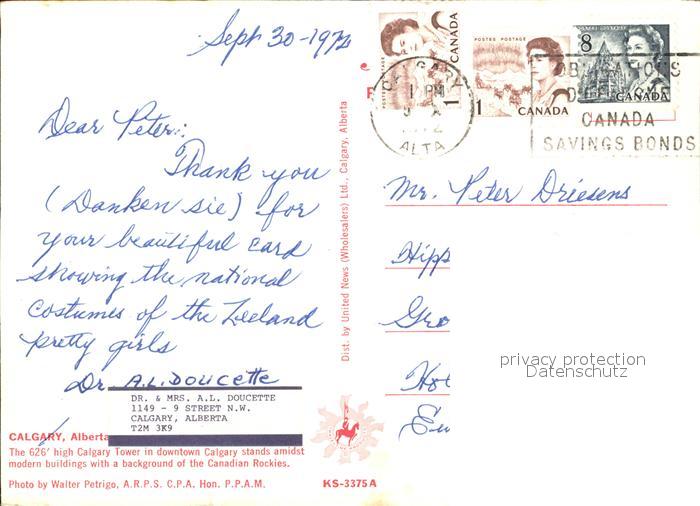 Sept 30-1972
Dear Peter:
Thank you
(Danken sie) for
your beautiful card
showing the national
costumes of the Zeeland
pretty girls
Dr. A.L. DOUCETTE
DR. & MRS. A.L. DOUCETTE
1149 - 9 STREET N.W.
CALGARY, ALBERTA
T2M 3K9
CALGARY, Alberta
The 626' high Calgary Tower in downtown Calgary stands amidst
modern buildings with a background of the Canadian Rockies.
Photo by Walter Petrigo, A.R.P.S. C.P.A. Hon. P.P.A.M.
KS-3375A
Dist. by United News (Wholesalers) Ltd., Calgary, Alberta
POSTES POSTAGE
1 CANADA
POSTES POSTAGE
1 CANADA
8
CANADA
CALGARY
1 PM
ALTA
CANADA
SAVINGS BONDS
Mr. Peter Driesens
Hipp
Gro
Hot
Eu
privacy protection
Datenschutz